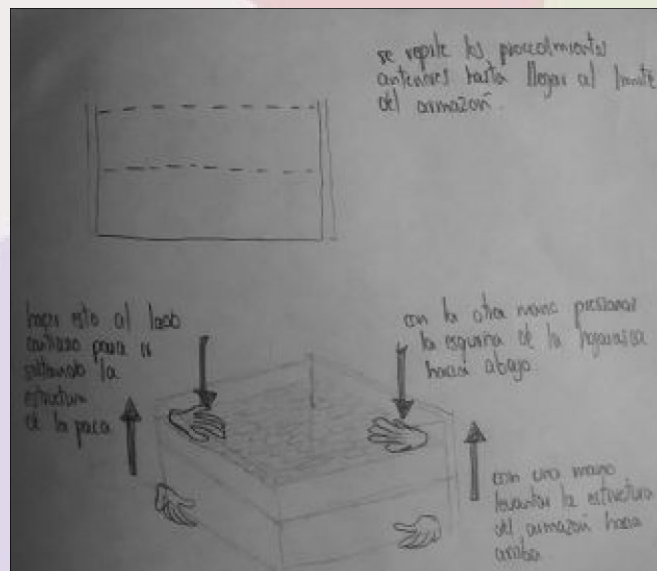 se repite los procedimientos
anteriores hasta llegar al limite
del armazoñ.
esto al lado
para ir
soltando la
estructura
de la paca
con la otra mano presionar
la esquina de la
hacia abajo.
con una mano
levantar la estructura
del armazoñ hacia
arriba